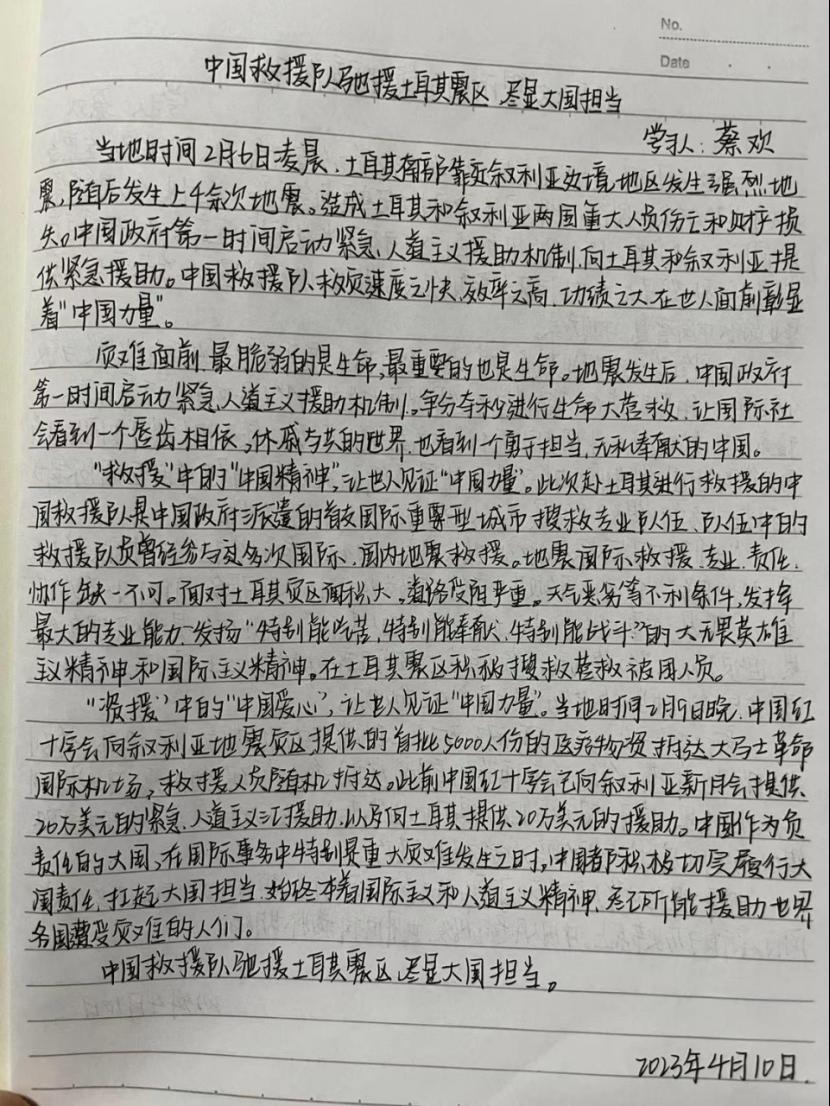 No.
Date
中国救援队驰援土耳其震区 尽显大国担当
学习人：蔡欢
当地时间2月6日凌晨，土耳其南部靠近叙利亚边境地区发生强烈地
震，随后发生上千余次地震。造成土耳其和叙利亚两国重大人员伤亡和财产损
失。中国政府第一时间启动紧急人道主义援助机制，向土耳其和叙利亚提
供紧急援助。中国救援队救灾速度之快、效率之高、功绩之大，在世人面前彰显
着“中国力量”。
灾难面前，最脆弱的是生命，最重要的也是生命。地震发生后，中国政府
第一时间启动紧急人道主义援助机制。争分夺秒进行生命大营救，让国际社
会看到一个唇齿相依、休戚与共的世界，也看到一个勇于担当、无私奉献的中国。
“救援”中的“中国精神”，让世人见证“中国力量”。此次赴土耳其进行救援的中
国救援队是中国政府派遣的首支国际重型城市搜救专业队伍，队伍中的
救援队员曾经参与过多次国际、国内地震救援。地震国际救援，专业、责任、
协作缺一不可。面对土耳其灾区面积大，道路受阻严重。天气恶劣等不利条件，发挥
最大的专业能力，发扬“特别能吃苦、特别能奉献、特别能战斗”的大无畏英雄
主义精神和国际主义精神。在土耳其震区积极搜救营救被困人员。
“资援”中的“中国爱心”，让世人见证“中国力量”。当地时间2月9日晚，中国红
十字会向叙利亚地震灾区提供的首批5000人份的医疗物资抵达大马士革
国际机场，救援人员随机抵达。此前中国红十字会已向叙利亚新月会提供
20万美元的紧急人道主义援助，以及向土耳其提供20万美元的援助。中国作为负
责任的大国，在国际事务中特别是重大灾难发生之时，中国都积极切实履行大
国责任，扛起大国担当，始终本着国际主义和人道主义精神，尽己所能援助世界
各国遭受灾难的人们。
中国救援队驰援土耳其震区，尽显大国担当。
2023年4月10日.